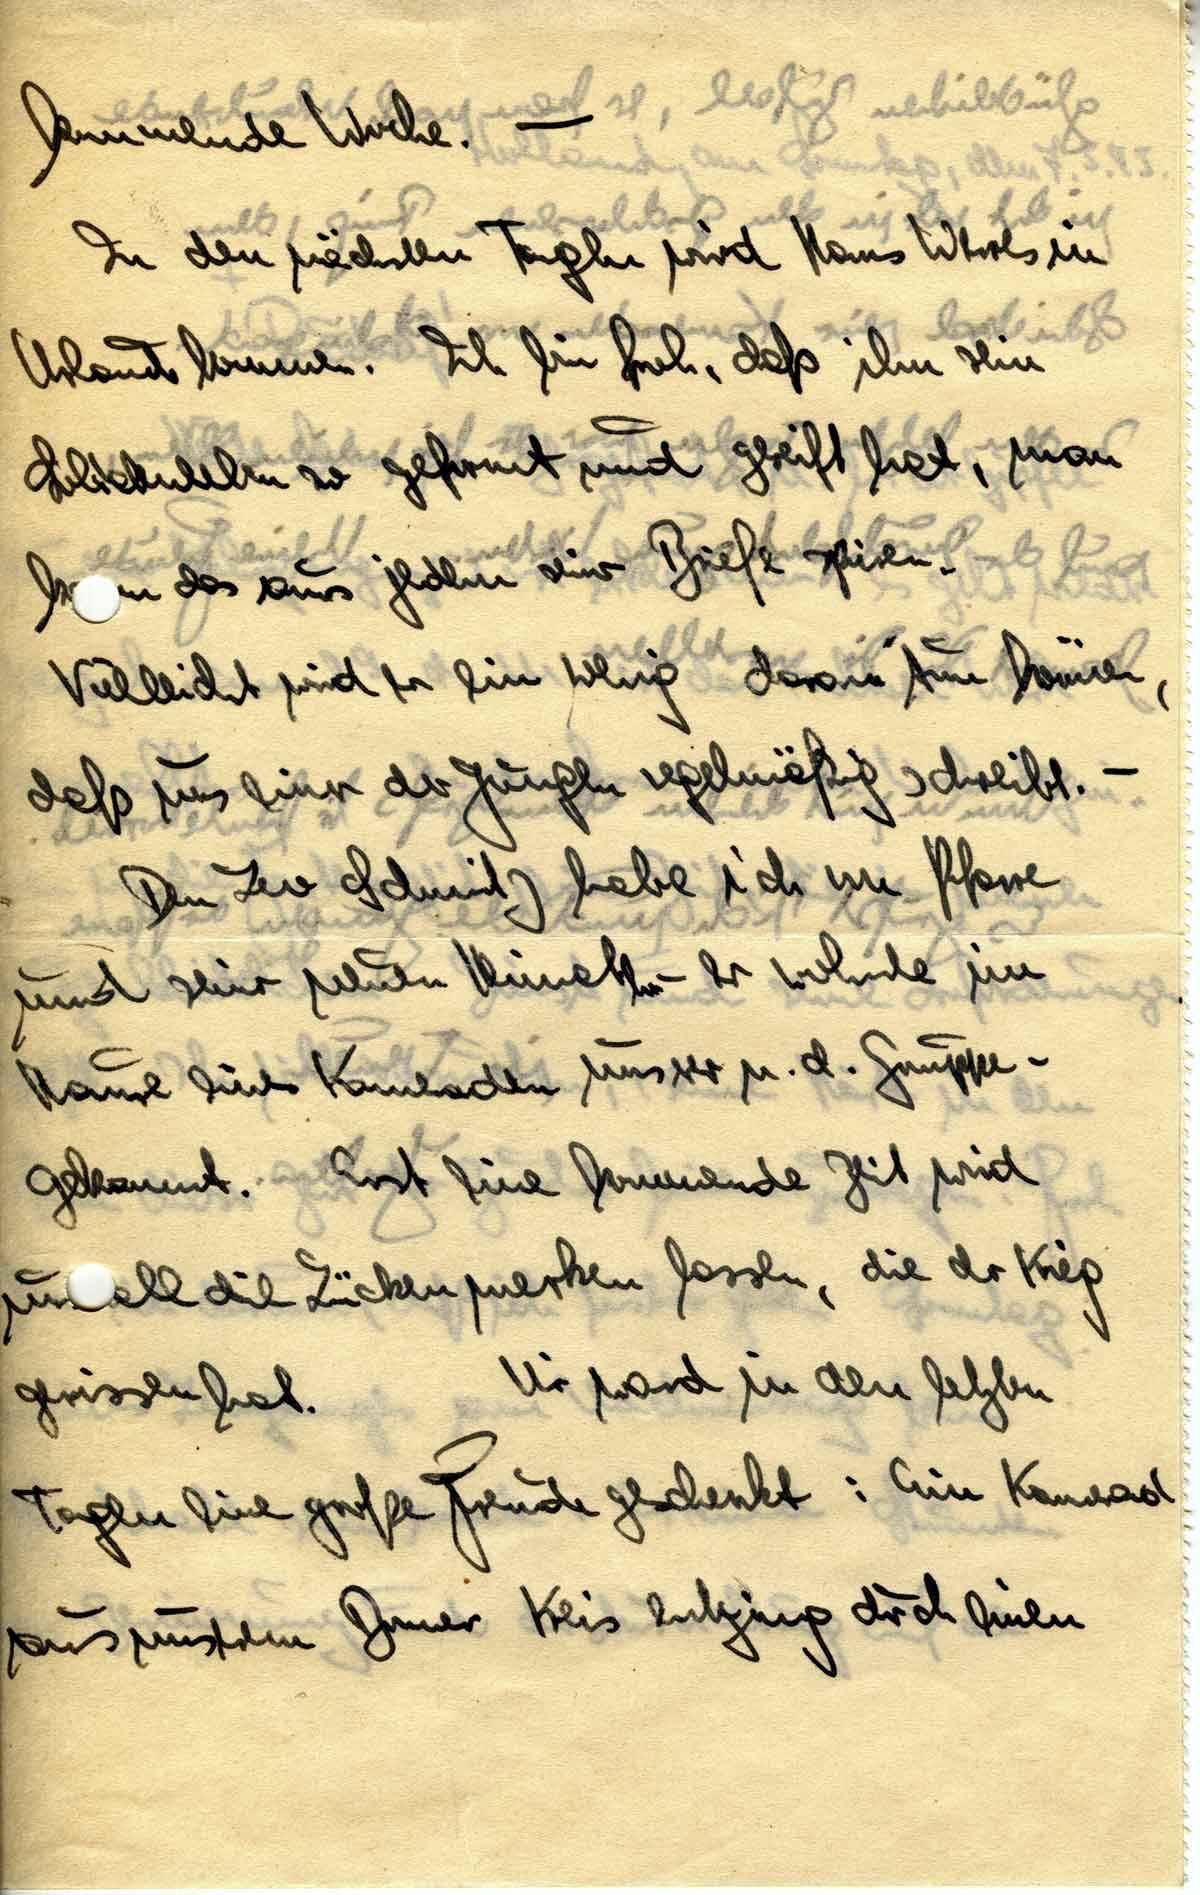 kommende Woche. —
In den nächsten Tagen wird Hans in
Urlaub kommen. Ich bin froh, daß ihm sein
Soldatenleben so geformt und gereift hat, man
kann das aus jedem seiner Briefe spüren.
Vielleicht wird er ein wenig daran tun können,
daß uns einer der Jungen regelmäßig schreibt. —
Den Leo Schmitz habe ich von Pfarre
und seiner neuen Heimat her – er wohnte im
Hause eines Kameraden unserer n. d. Gruppe –
gekannt. Erst eine kommende Zeit wird
uns all die Lücken merken lassen, die der Krieg
gerissen hat. Mir ward in den letzten
Tagen eine große Freude geschenkt: Ein Kamerad
aus unserem Bonner Kreis entging durch einen